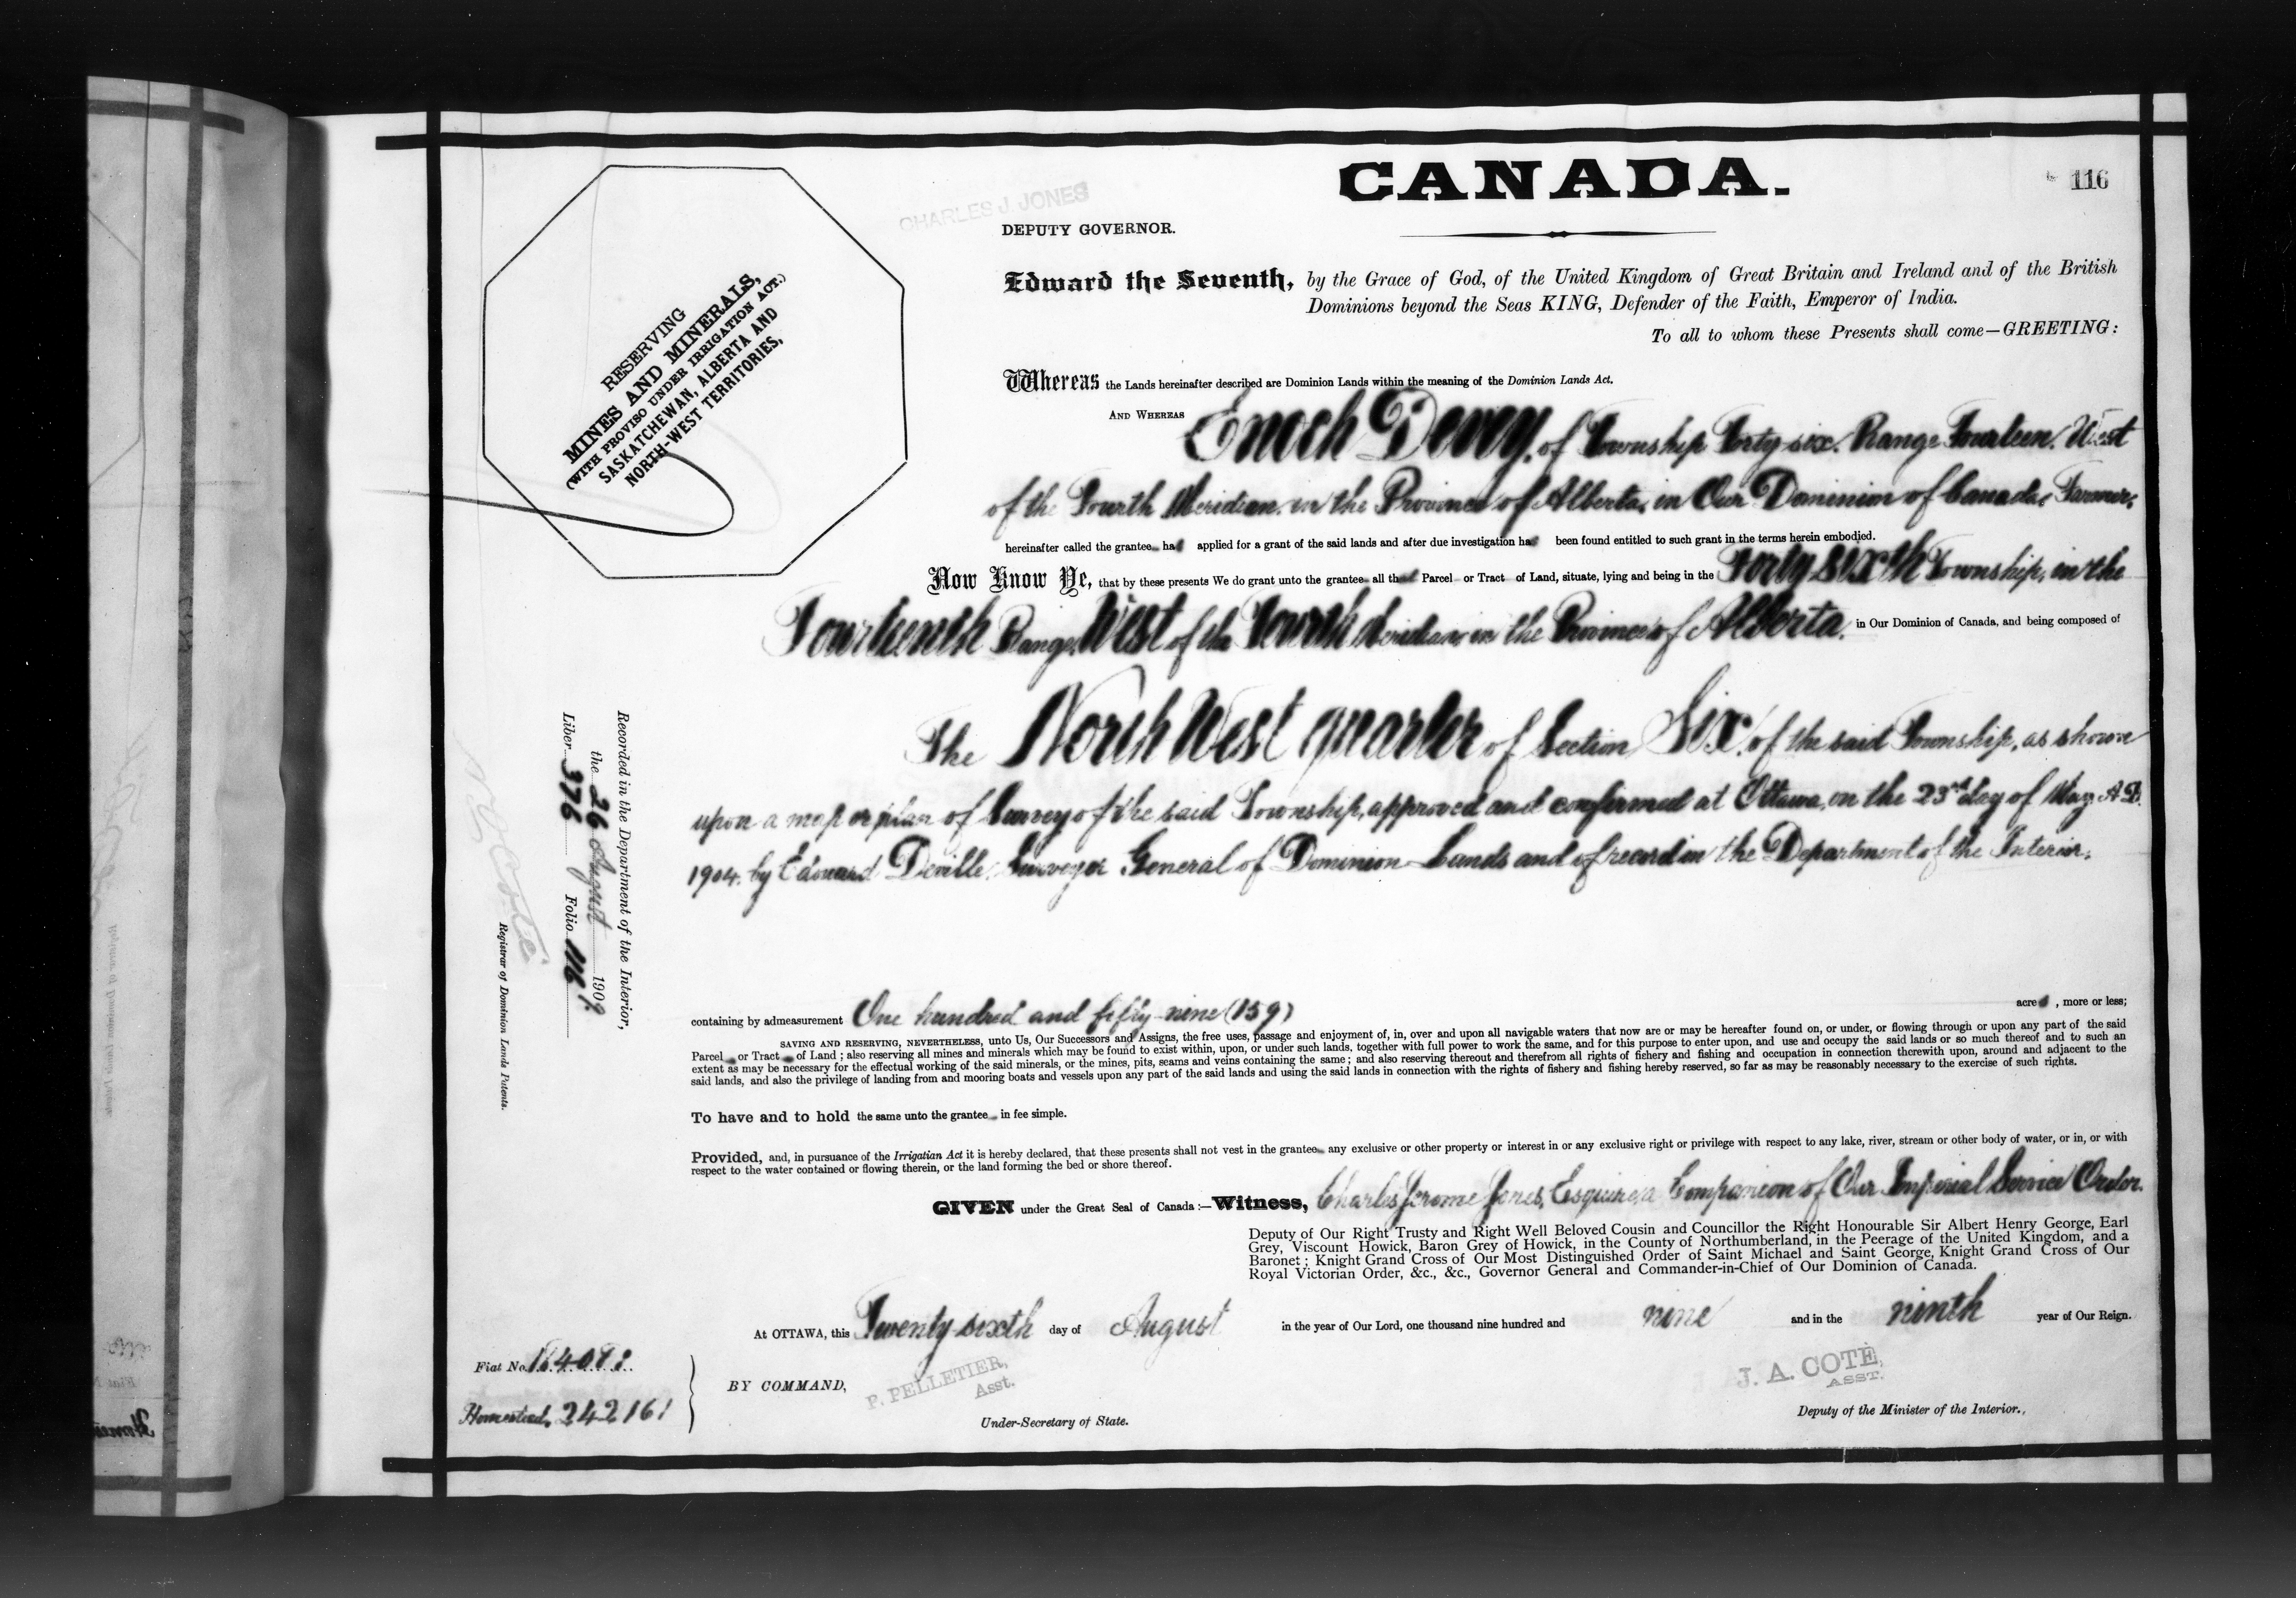 CANADA.
116
CHARLES J. JONES
DEPUTY GOVERNOR.
Edward the Seventh, by the Grace of God, of the United Kingdom of Great Britain and Ireland and of the British
Dominions beyond the Seas KING, Defender of the Faith, Emperor of India.
To all to whom these Presents shall come—GREETING:
RESERVING
MINES AND MINERALS,
(WITH PROVISO UNDER IRRIGATION ACT.)
SASKATCHEWAN, ALBERTA AND
NORTH-WEST TERRITORIES,
Whereas the Lands hereinafter described are Dominion Lands within the meaning of the Dominion Lands Act.
AND WHEREAS Enoch Devey, of Township Forty-six, Range Fourteen, West
of the Fourth Meridian, in the Province of Alberta, in Our Dominion of Canada, Farmer,
hereinafter called the grantee has applied for a grant of the said lands and after due investigation has been found entitled to such grant in the terms herein embodied.
Now Know Ye, that by these presents We do grant unto the grantee all that Parcel or Tract of Land, situate, lying and being in the Forty sixth Township, in the
Fourteenth Range, West of the Fourth Meridian, in the Province of Alberta, in Our Dominion of Canada, and being composed of
The North West quarter of Section Six, of the said Township, as shown
upon a map or plan of Survey of the said Township, approved and confirmed at Ottawa, on the 23rd day of May, A.D.
1904, by Edouard Deville, Surveyor General of Dominion Lands and of record in the Department of the Interior,
containing by admeasurement One hundred and fifty-nine (159) acres, more or less;
SAVING AND RESERVING, NEVERTHELESS, unto Us, Our Successors and Assigns, the free uses, passage and enjoyment of, in, over and upon all navigable waters that now are or may be hereafter found on, or under, or flowing through or upon any part of the said
Parcel or Tract of Land; also reserving all mines and minerals which may be found to exist within, upon, or under such lands, together with full power to work the same, and for this purpose to enter upon, and use and occupy the said lands or so much thereof and to such an
extent as may be necessary for the effectual working of the said minerals, or the mines, pits, seams and veins containing the same; and also reserving thereout and therefrom all rights of fishery and fishing and occupation in connection therewith upon, around and adjacent to the
said lands, and also the privilege of landing from and mooring boats and vessels upon any part of the said lands and using the said lands in connection with the rights of fishery and fishing hereby reserved, so far as may be reasonably necessary to the exercise of such rights.
To have and to hold the same unto the grantee in fee simple.
Provided, and, in pursuance of the Irrigation Act it is hereby declared, that these presents shall not vest in the grantee any exclusive or other property or interest in or any exclusive right or privilege with respect to any lake, river, stream or other body of water, or in, or with
respect to the water contained or flowing therein, or the land forming the bed or shore thereof.
GIVEN under the Great Seal of Canada:—Witness, Charles Jerome Jones, Esquire, a Companion of Our Imperial Service Order,
Deputy of Our Right Trusty and Right Well Beloved Cousin and Councillor the Right Honourable Sir Albert Henry George, Earl
Grey, Viscount Howick, Baron Grey of Howick, in the County of Northumberland, in the Peerage of the United Kingdom, and a
Baronet; Knight Grand Cross of Our Most Distinguished Order of Saint Michael and Saint George, Knight Grand Cross of Our
Royal Victorian Order, &c., &c., Governor General and Commander-in-Chief of Our Dominion of Canada.
At OTTAWA, this Twenty-sixth day of August in the year of Our Lord, one thousand nine hundred and nine and in the ninth year of Our Reign.
BY COMMAND,
P. PELLETIER,
Asst.
Under-Secretary of State.
J. A. COTÉ,
ASST.
Deputy of the Minister of the Interior.,
Fiat No.
Homestead,
Recorded in the Department of the Interior,
the 26 August 1909.
Liber 376 Folio 116.
N O Coté
Registrar of Dominion Lands Patents.